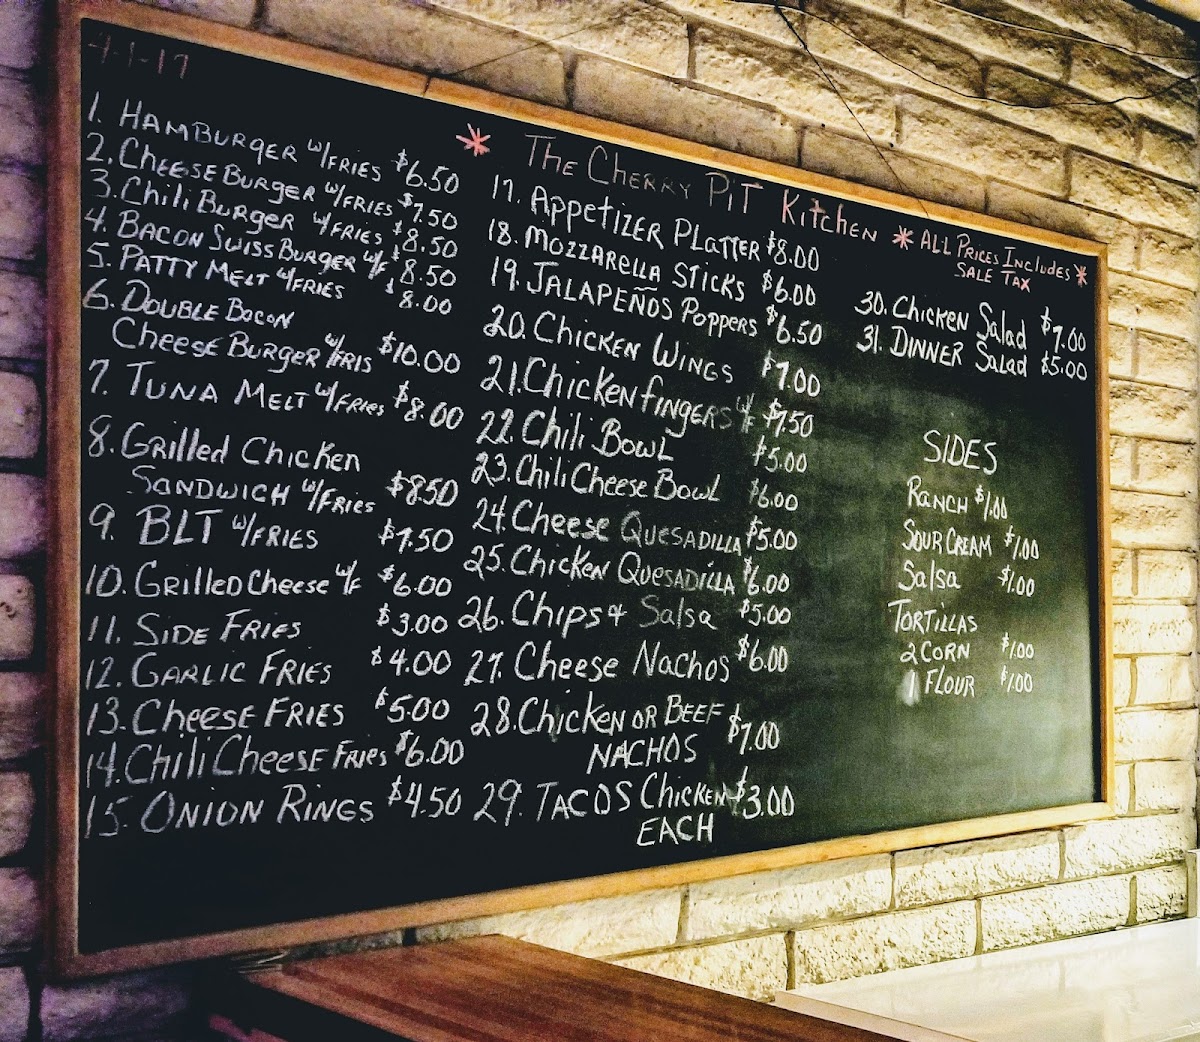 4-1-17
* The Cherry Pit Kitchen * All Prices Includes *
Sale Tax
1. Hamburger w/Fries $6.50
2. Cheese Burger w/Fries $7.50
3. Chili Burger w/Fries $8.50
4. Bacon Swiss Burger w/F $8.50
5. Patty Melt w/Fries $8.00
6. Double Bacon
Cheese Burger w/Fris $10.00
7. Tuna Melt w/Fries $8.00
8. Grilled Chicken
Sandwich w/Fries $8.50
9. BLT w/Fries $7.50
10. Grilled Cheese w/F $6.00
11. Side Fries $3.00
12. Garlic Fries $4.00
13. Cheese Fries $5.00
14. Chili Cheese Fries $6.00
15. Onion Rings $4.50
17. Appetizer Platter $8.00
18. Mozzarella Sticks $6.00
19. Jalapeños Poppers $6.50
20. Chicken Wings $7.00
21. Chicken Fingers w/F $7.50
22. Chili Bowl $5.00
23. Chili Cheese Bowl $6.00
24. Cheese Quesadilla $5.00
25. Chicken Quesadilla $6.00
26. Chips & Salsa $5.00
27. Cheese Nachos $6.00
28. Chicken or Beef $7.00
Nachos
29. Tacos Chicken $3.00
Each
30. Chicken Salad $7.00
31. Dinner Salad $5.00
Sides
Ranch $1.00
Sour Cream $1.00
Salsa $1.00
Tortillas
2 Corn $1.00
1 Flour $1.00